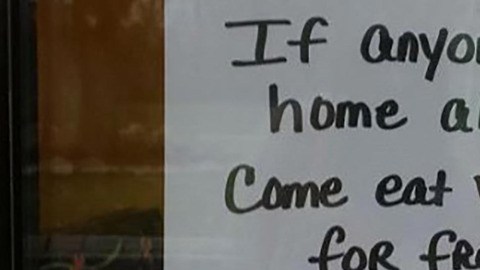 If anyo
home a
Come eat
for fr